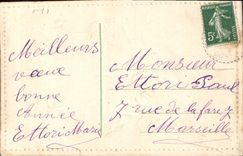 Meilleurs
voeux
bonne
Année
Ettori
Monsieur
Ettori Paul
7 rue de la
Marseille
5